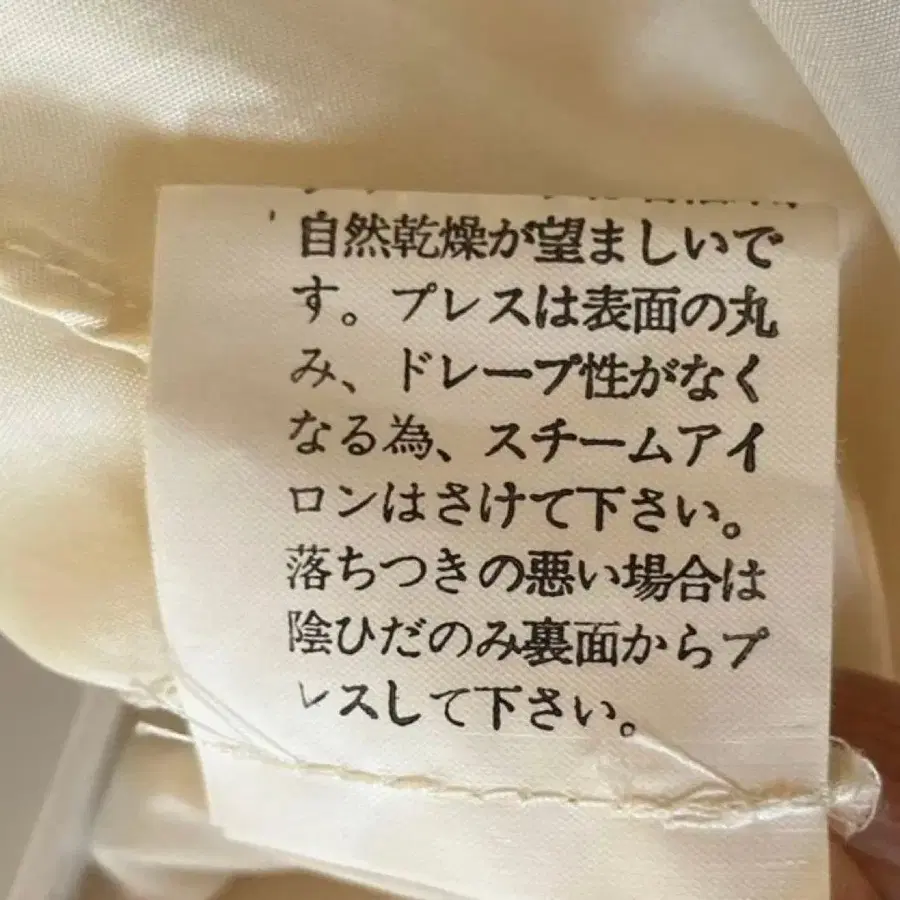 自然乾燥が望ましいで
す。プレスは表面の丸
み、ドレープ性がなく
なる為、スチームアイ
ロンはさけて下さい。
落ちつきの悪い場合は
陰ひだのみ裏面からプ
レスして下さい。